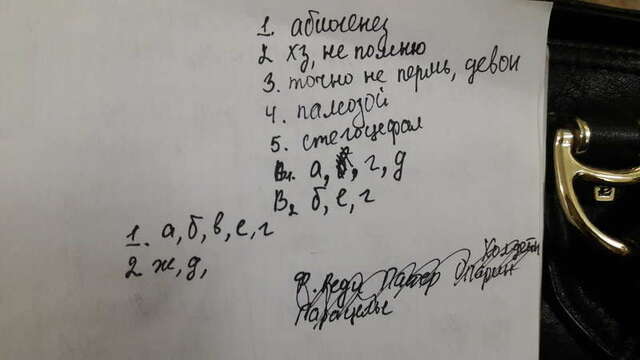 1. абиженец
2 хз, не помню
3. точно не пермь, девон
4. палеозой
5. стегоцефал
Вн. а, г, д
В2 б, е, г
1. а, б, в, е, г
2 ж, д,